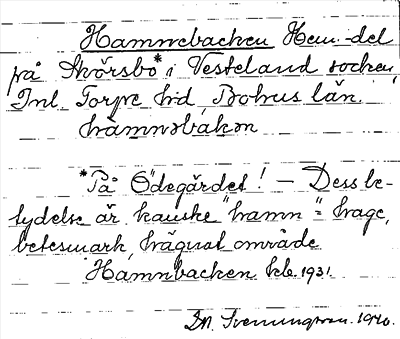 Hamnebacken Hem.-del
på Skörsbo* i Vesteland socken,
Inl. Torpe hd, Bohus län.
hàmnəbákən
*På Ödegärdet! — Dess be-
tydelse är kanske "hamn" = hage,
betesmark, hägnat område
Hamnbacken kb. 1931.
D.A. Svenningson. 1940.